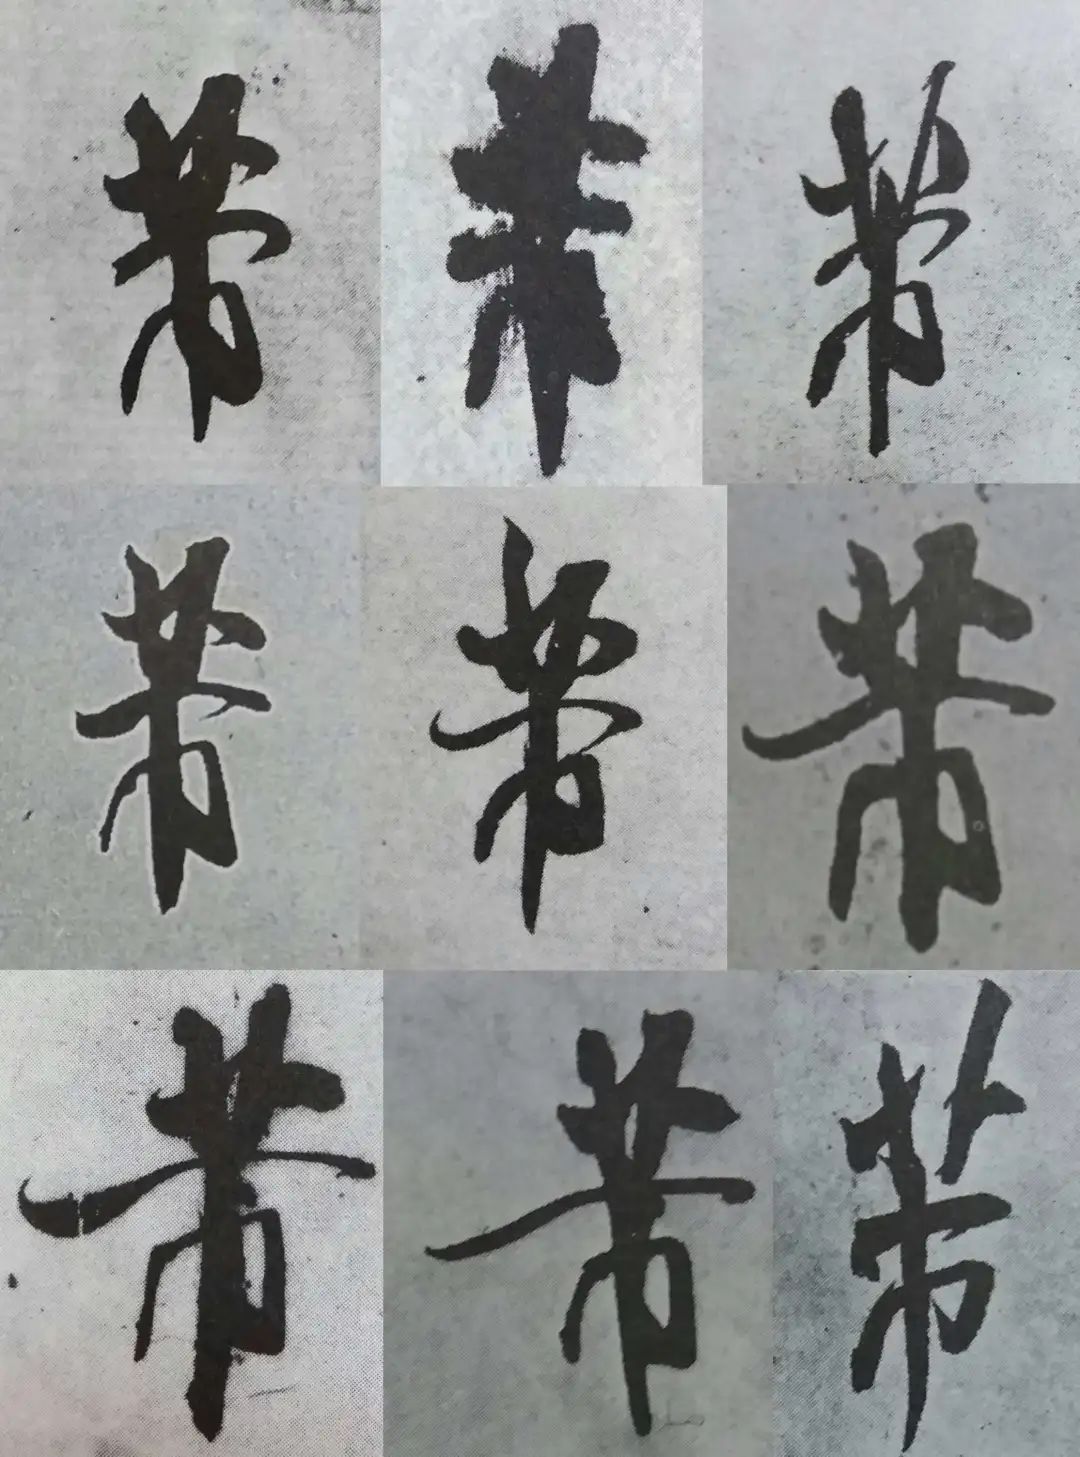 芾 芾 芾
芾 芾 芾
芾 芾 芾